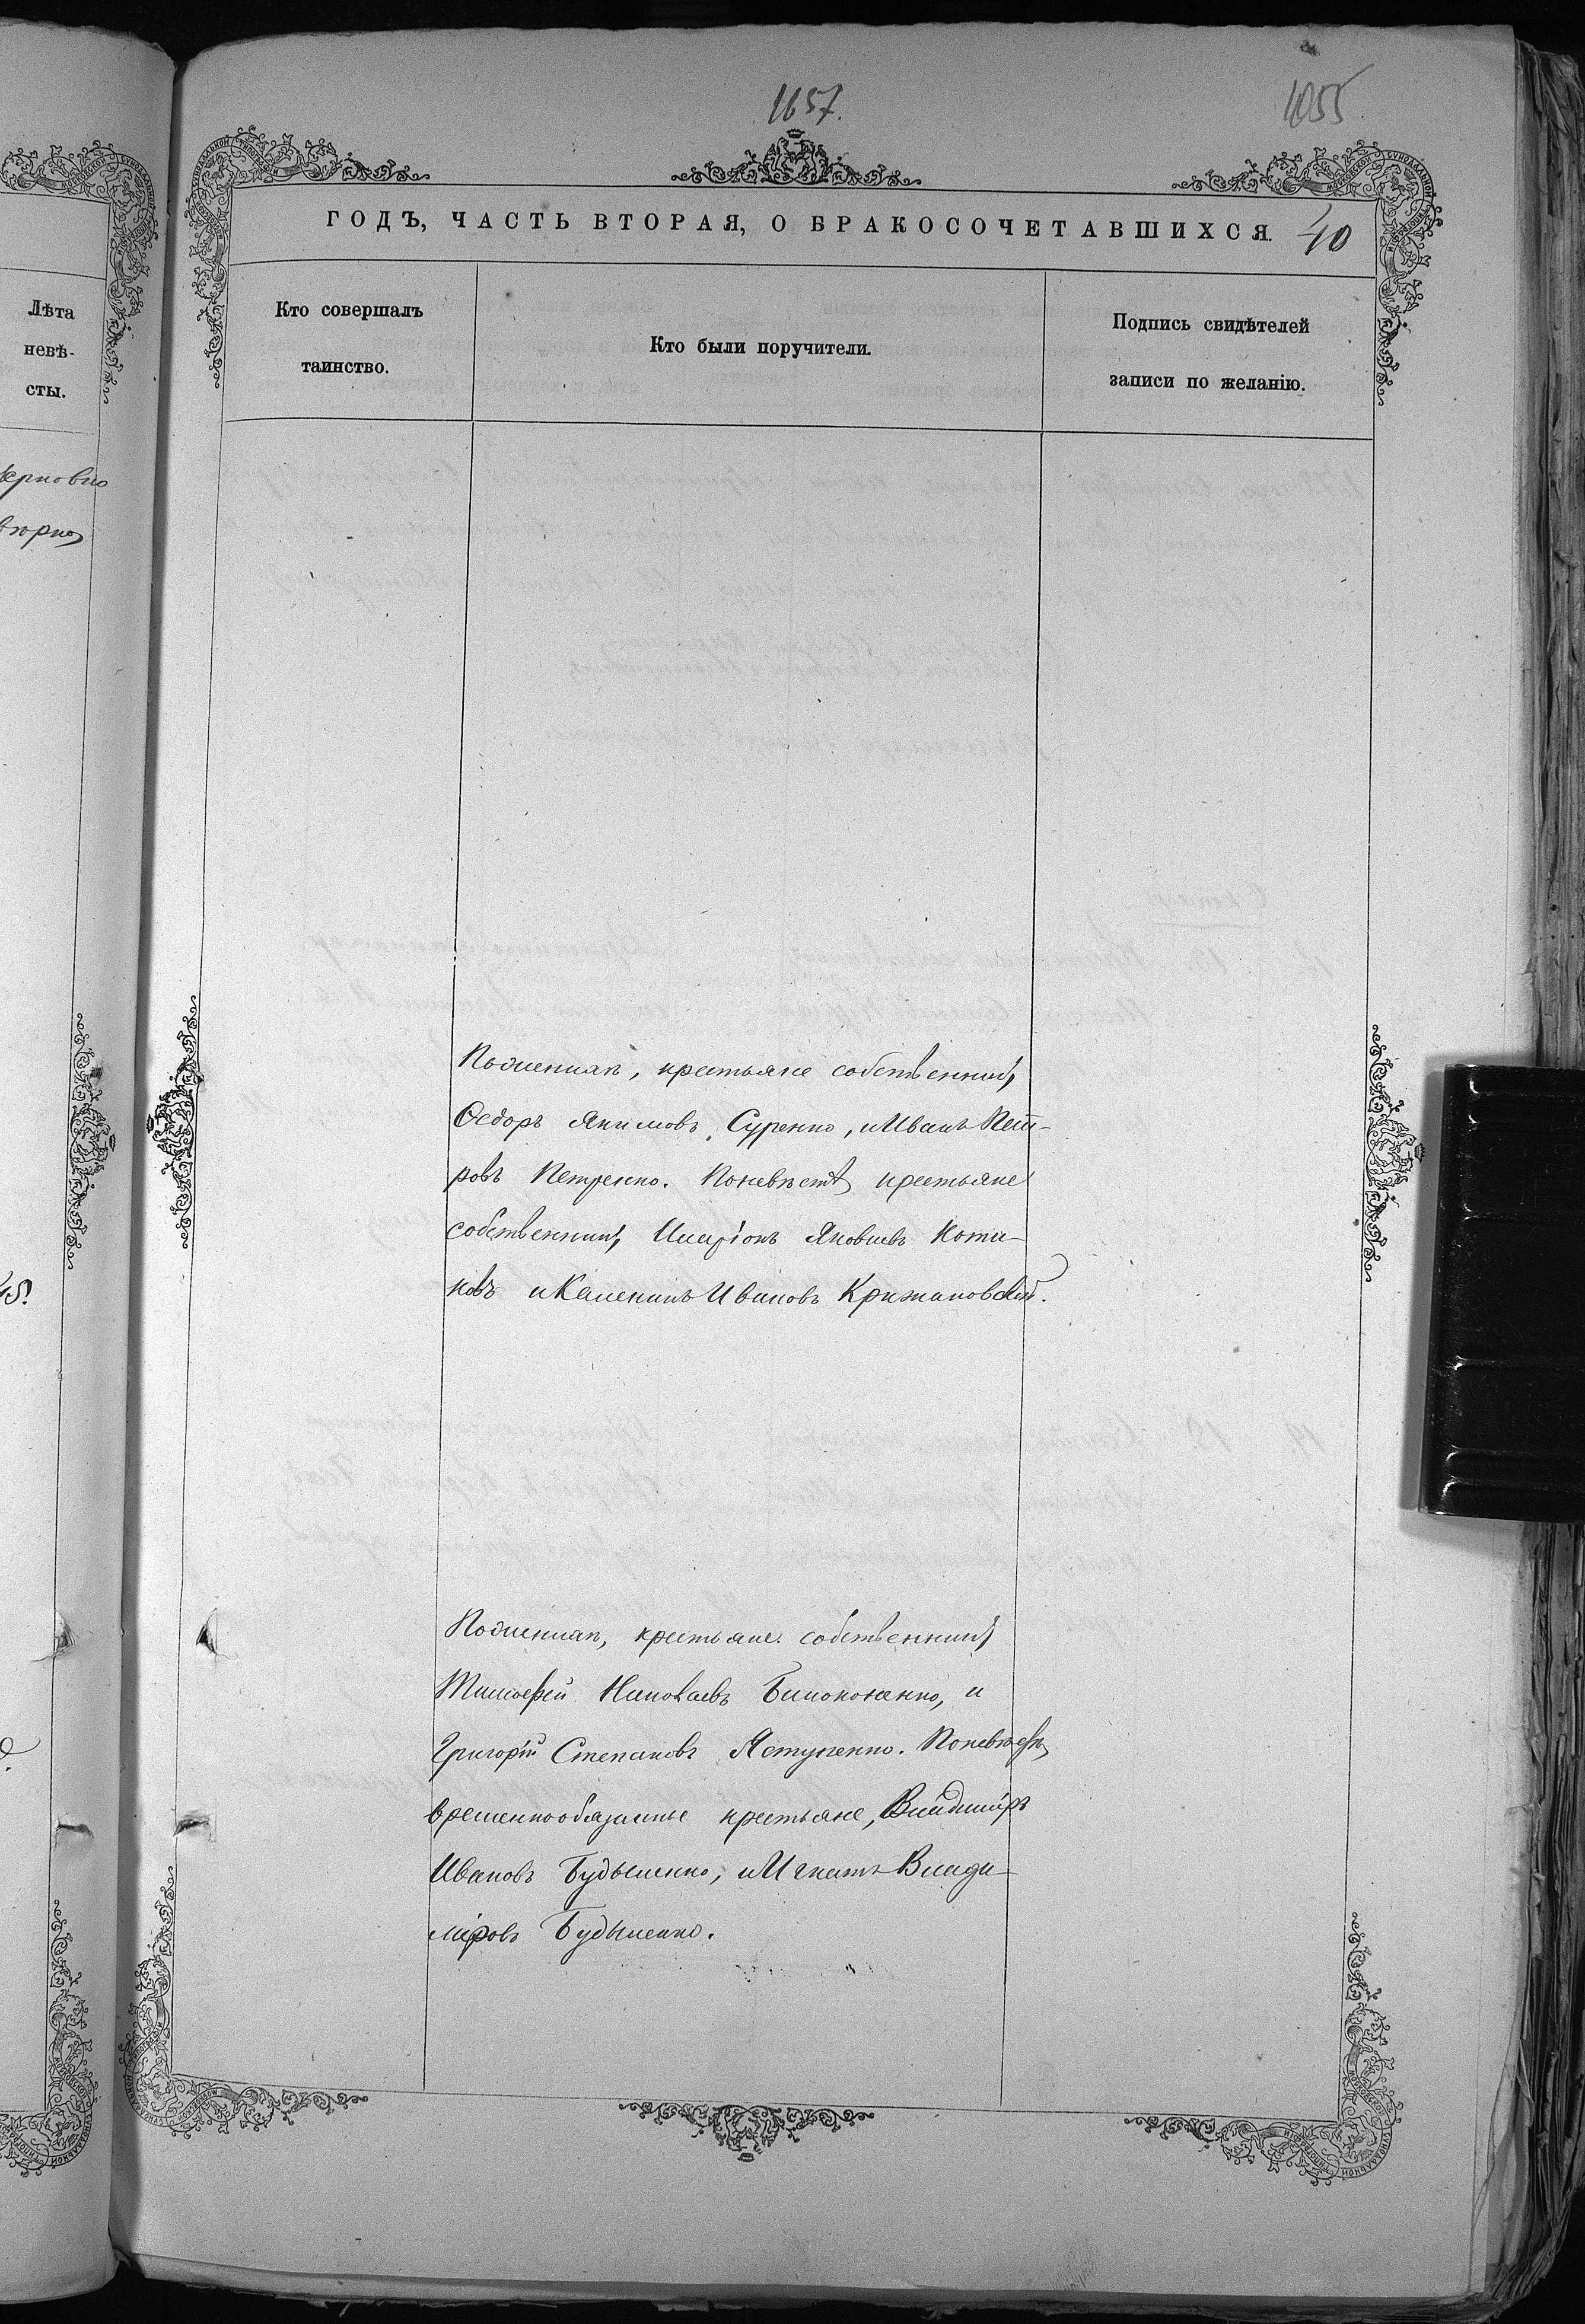 1657.
1055
ГОДЪ, ЧАСТЬ ВТОРАЯ, О БРАКОСОЧЕТАВШИХСЯ.
40
Лѣта
невѣ-
сты.
Кто совершалъ
таинство.
Кто были поручители.
Подпись свидѣтелей
записи по желанію.
По женихѣ, крестьяне собственники,
Ѳедоръ Якимовъ Суренко, и Иванъ Пет-
ровъ Петренко. По невѣстѣ крестьяне
собственники, Иларіонъ Яковлевъ Коти-
ковъ и Каленикъ Ивановъ Крижановскій.
45.
По женихѣ, крестьяне собственники,
Тимофей Николаевъ Билоконенко, и
Григорій Степановъ Ястуненко. По невѣстѣ,
временнообязанные крестьяне, Владиміръ
Ивановъ Будыленко, и Игнатъ Влади-
міровъ Будыленко.